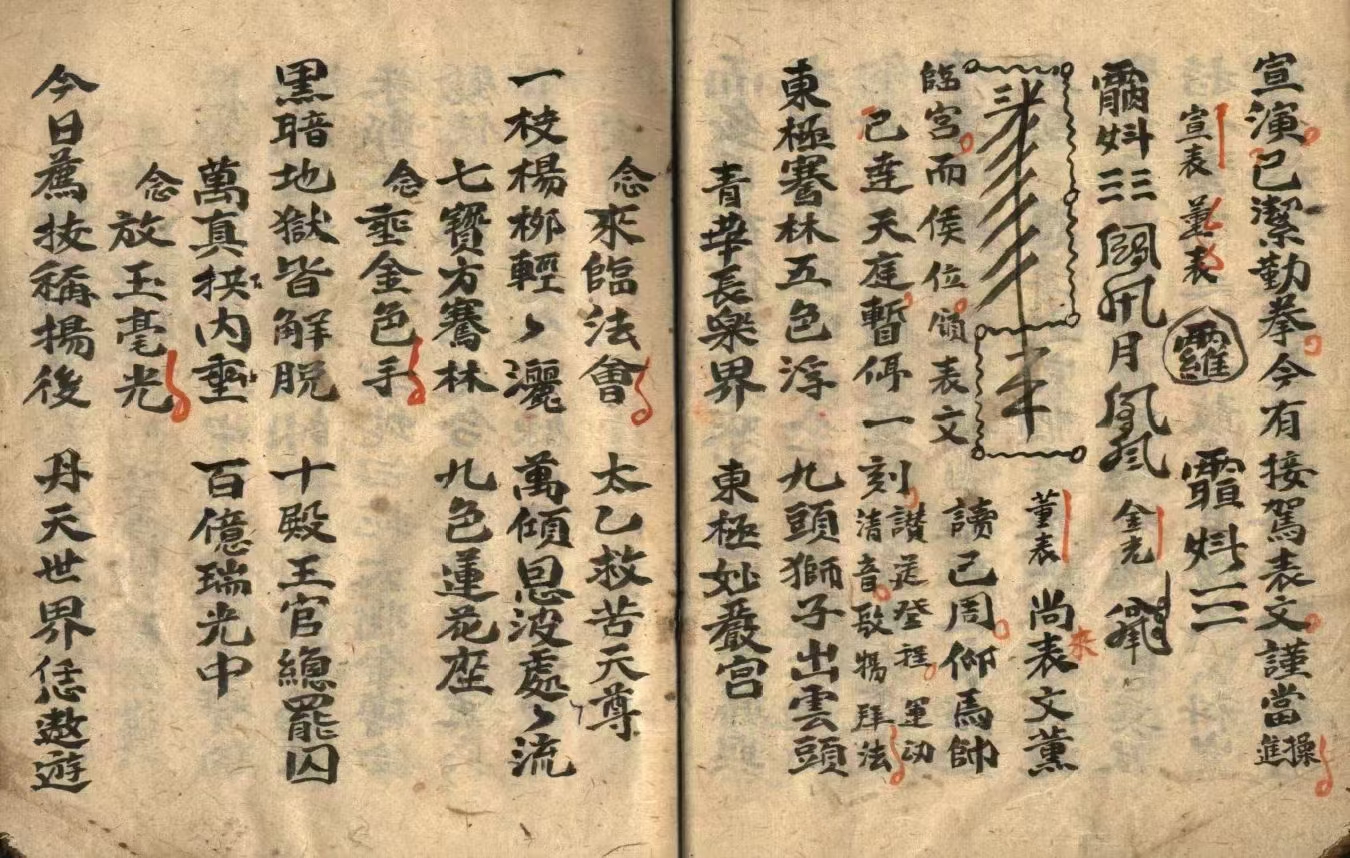 宣演已潔勤拳今有接駕表文謹當操進
宣表 薰表
金光
薰表 尚來表文薰
讀已周仰馬帥
臨宮而侯位領表文
已達天庭暫停一刻讃送登程運功
清音敬揚拜法
東極騫林五色浮 九頭獅子出雲頭
青華長樂界 東極妙嚴宮
念來臨法會 太乙救苦天尊
一枝楊柳輕々灑 萬傾恩波處々流
七寶方騫林 九色蓮花座
念垂金色手
黑暗地獄皆解脱 十殿王官總罷囚
萬真挾内垂 百億瑞光中
念放玉毫光
今日薦拔稱揚後 丹天世界恁遨遊